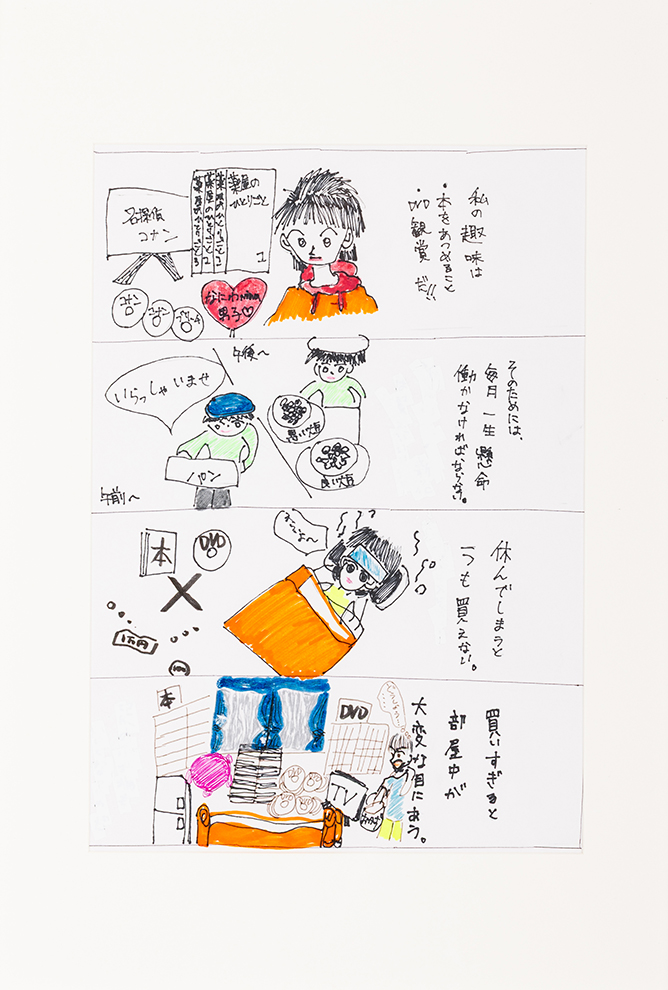 私の趣味は
・本をあつめること
・DVD観賞 だ!!
薬屋の
ひとりごと
1
薬屋のひとりごと2
名探偵
コナン
コナン
コナン
なにわ
男子♡
そのためには、
毎月一生懸命
働かなければ、ならない。
午後〜
悪い大豆
良い大豆
いらっしゃいませ
パン
午前〜
休んでしまうと
一つも買えない。
DVD
本
1万円
100
買いすぎると
部屋中が
大変な目にあう。
DVD
本
TV